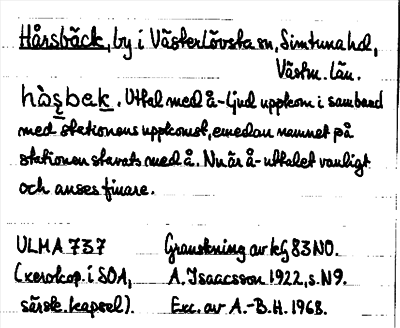 Hårsbäck, by i Västerlövsta sn, Simtuna hd,
Västm. län.
hȧ̀ʂbak. Uttal med å-ljud uppkom i samband
med stationens uppkomst, emedan namnet på
stationen stavats med å. Nu är å-uttalet vanligt
och anses finare.
ULMA 737 Granskning av LG 83 NO.
(xerokop. i SOA, A. Isaacsson 1922, s. N9.
särsk. kapsel). Exc. av A.-B.H. 1968.